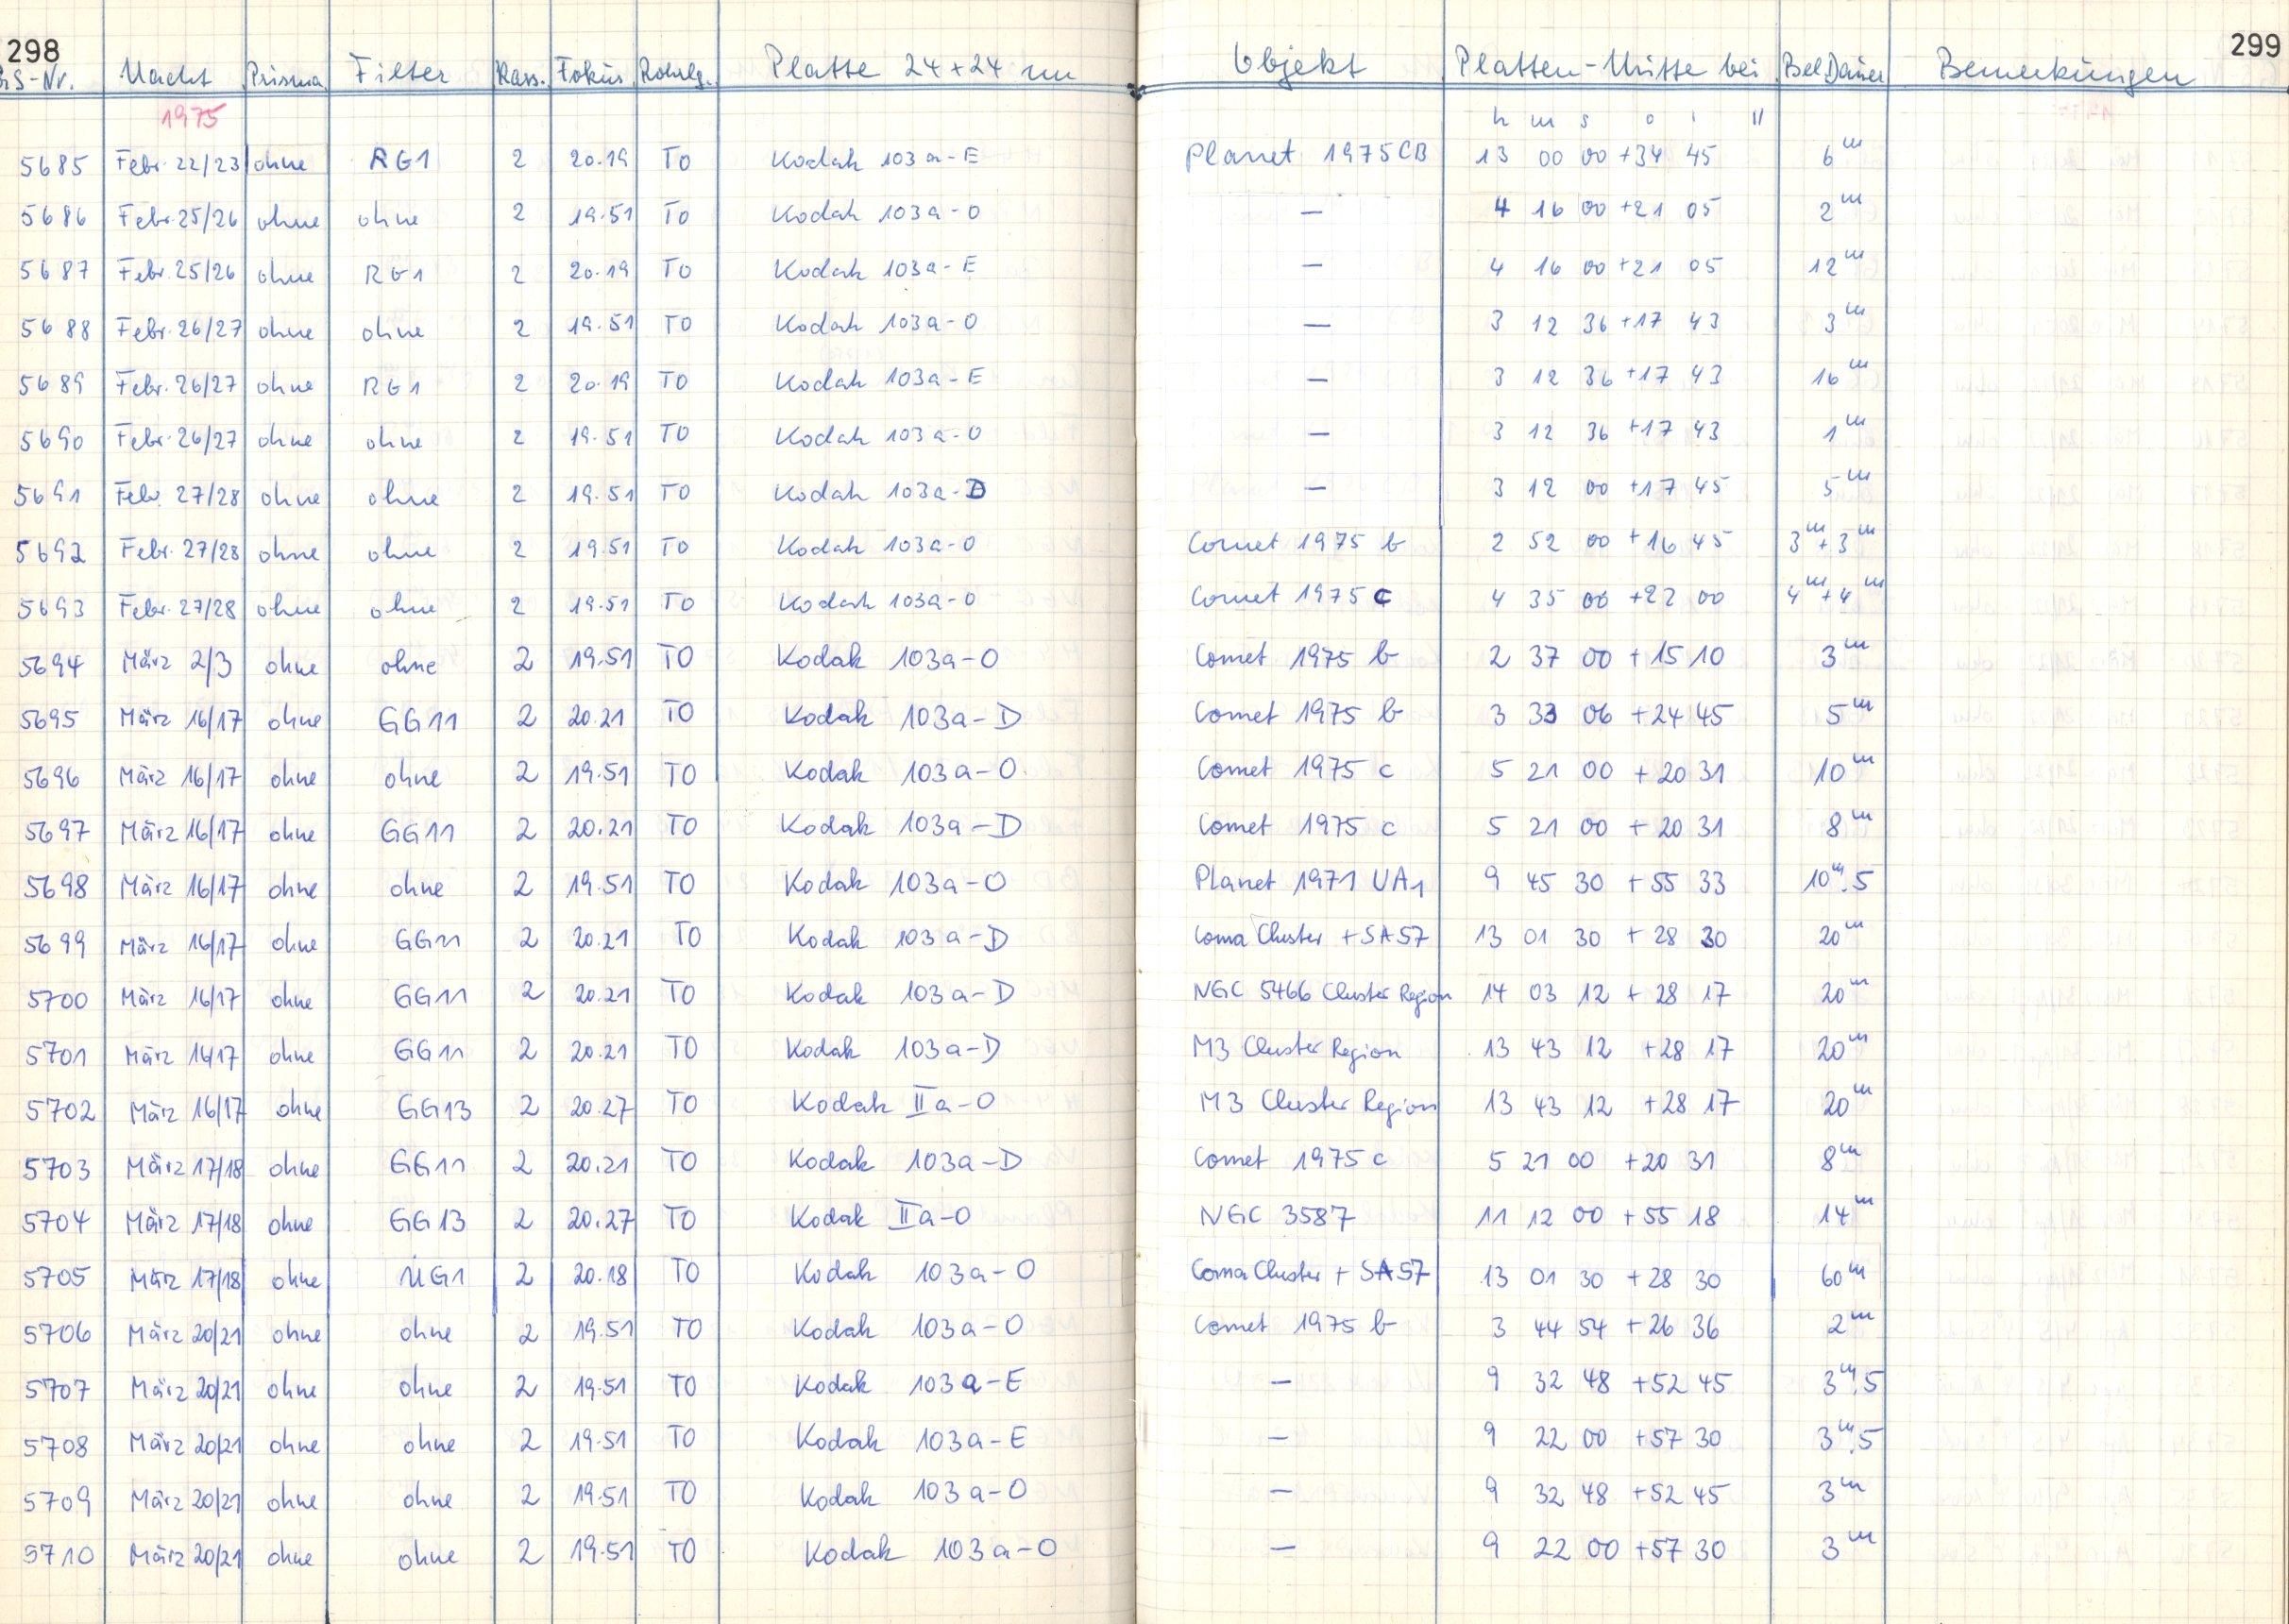 298 299
GS-Nr. Nacht Prisma Filter Kass. Fokus Rohrlg. Platte 24+24 cm Objekt Platten-Mitte bei Bel Dauer Bemerkungen
1975 h m s ° ' "
5685 Febr. 22/23 ohne RG1 2 20.19 TO Kodak 103a-E Planet 1975 CB 13 00 00 +34 45 6m
5686 Febr. 25/26 ohne ohne 2 19.51 TO Kodak 103a-O — 4 16 00 +21 05 2m
5687 Febr. 25/26 ohne RG1 2 20.19 TO Kodak 103a-E — 4 16 00 +21 05 12m
5688 Febr. 26/27 ohne ohne 2 19.51 TO Kodak 103a-O — 3 12 36 +17 43 3m
5689 Febr. 26/27 ohne RG1 2 20.19 TO Kodak 103a-E — 3 12 36 +17 43 16m
5690 Febr. 26/27 ohne ohne 2 19.51 TO Kodak 103a-O — 3 12 36 +17 43 1m
5691 Febr. 27/28 ohne ohne 2 19.51 TO Kodak 103a-D — 3 12 00 +17 45 5m
5692 Febr. 27/28 ohne ohne 2 19.51 TO Kodak 103a-O Comet 1975 b 2 52 00 +16 45 3m+3m
5693 Febr. 27/28 ohne ohne 2 19.51 TO Kodak 103a-O Comet 1975 c 4 35 00 +22 00 4m+4m
5694 März 2/3 ohne ohne 2 19.51 TO Kodak 103a-O Comet 1975 b 2 37 00 +15 10 3m
5695 März 16/17 ohne GG11 2 20.21 TO Kodak 103a-D Comet 1975 b 3 33 06 +24 45 5m
5696 März 16/17 ohne ohne 2 19.51 TO Kodak 103a-O Comet 1975 c 5 21 00 +20 31 10m
5697 März 16/17 ohne GG11 2 20.21 TO Kodak 103a-D Comet 1975 c 5 21 00 +20 31 8m
5698 März 16/17 ohne ohne 2 19.51 TO Kodak 103a-O Planet 1971 UA1 9 45 30 +55 33 10m.5
5699 März 16/17 ohne GG11 2 20.21 TO Kodak 103a-D Coma Cluster + SA57 13 01 30 +28 30 20m
5700 März 16/17 ohne GG11 2 20.21 TO Kodak 103a-D NGC 5466 Cluster Region 14 03 12 +28 17 20m
5701 März 16/17 ohne GG11 2 20.21 TO Kodak 103a-D M3 Cluster Region 13 43 12 +28 17 20m
5702 März 16/17 ohne GG13 2 20.27 TO Kodak IIa-O M3 Cluster Region 13 43 12 +28 17 20m
5703 März 17/18 ohne GG11 2 20.21 TO Kodak 103a-D Comet 1975 c 5 21 00 +20 31 8m
5704 März 17/18 ohne GG13 2 20.27 TO Kodak IIa-O NGC 3587 11 12 00 +55 18 14m
5705 März 17/18 ohne UG1 2 20.18 TO Kodak 103a-O Coma Cluster + SA57 13 01 30 +28 30 60m
5706 März 20/21 ohne ohne 2 19.51 TO Kodak 103a-O Comet 1975 b 3 44 54 +26 36 2m
5707 März 20/21 ohne ohne 2 19.51 TO Kodak 103a-E — 9 32 48 +52 45 3m.5
5708 März 20/21 ohne ohne 2 19.51 TO Kodak 103a-E — 9 22 00 +57 30 3m.5
5709 März 20/21 ohne ohne 2 19.51 TO Kodak 103a-O — 9 32 48 +52 45 3m
5710 März 20/21 ohne ohne 2 19.51 TO Kodak 103a-O — 9 22 00 +57 30 3m